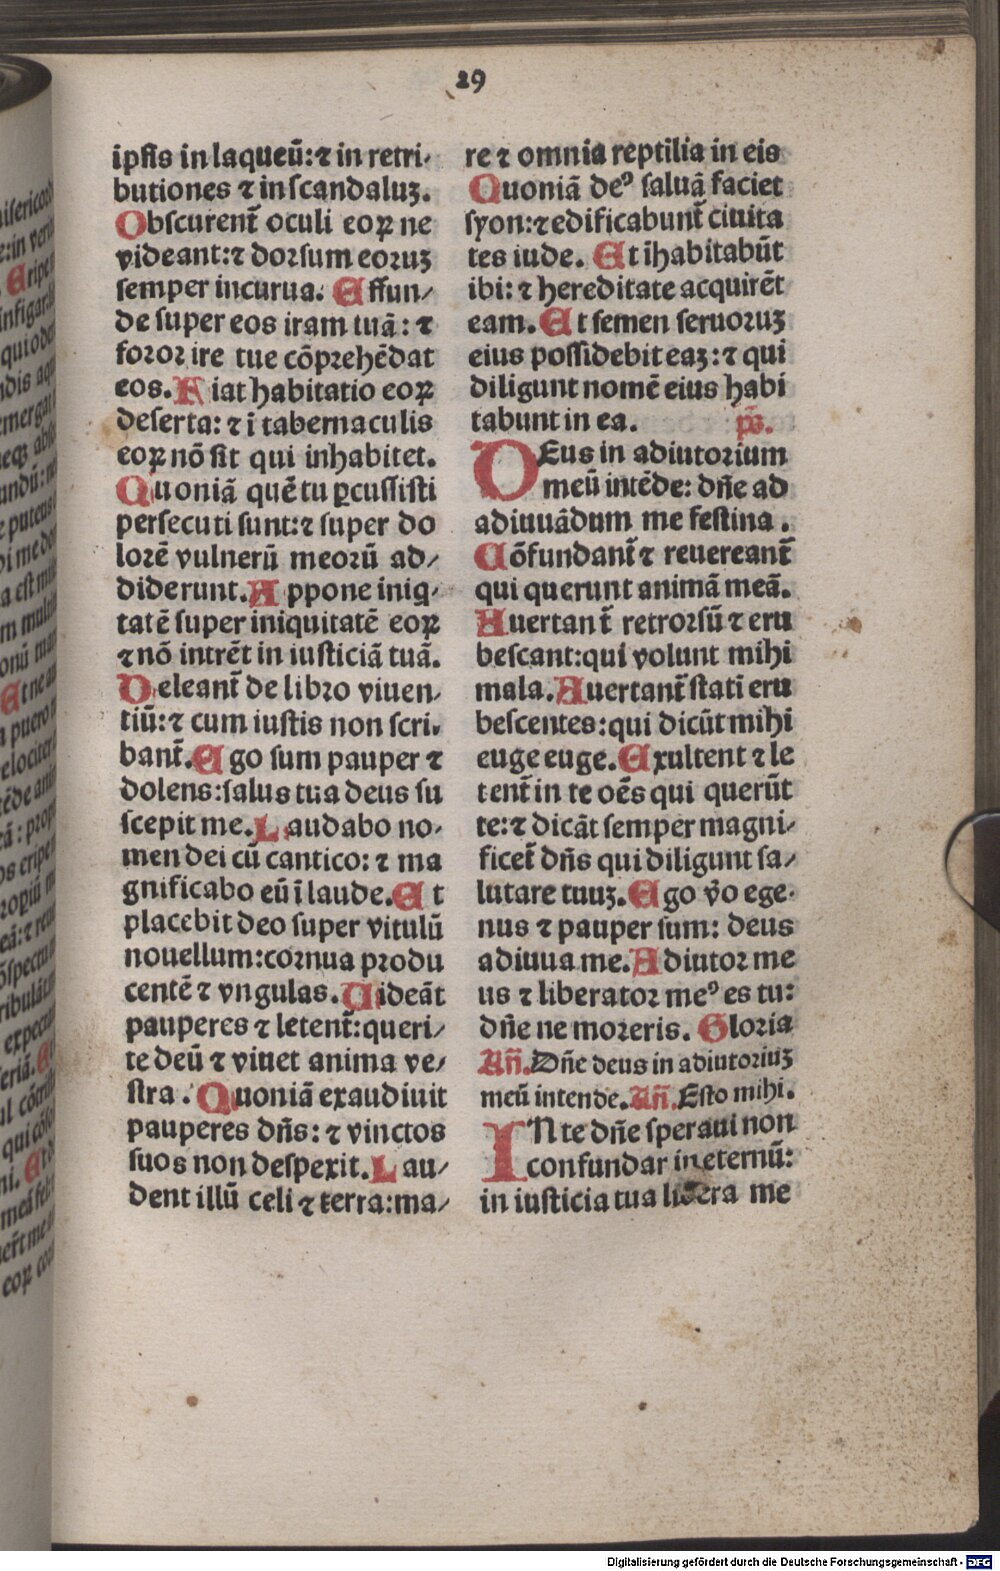 29
ipsis in laqueū: ⁊ in retri-
butiones ⁊ in scandaluꝫ.
Obscurent̄ oculi eoꝝ ne
videant: ⁊ dorsum eoruꝫ
semper incurua. Effun-
de super eos iram tuā: ⁊
foror ire tue cōprehēdat
eos. Fiat habitatio eoꝝ
deserta: ⁊ ī tabernaculis
eoꝝ nō sit qui inhabitet.
Quoniā quē tu ꝑcussisti
persecuti sunt: ⁊ super do
lorē vulnerū meorū ad-
diderunt. Appone iniq-
tatē super iniquitatē eoꝝ
⁊ nō intrēt in iusticiā tuā.
Deleant̄ de libro viuen-
tiū: ⁊ cum iustis non scri-
bant̄. Ego sum pauper ⁊
dolens: salus tua deus su
scepit me. Laudabo no-
men dei cū cantico: ⁊ ma
gnificabo eū ī laude. Et
placebit deo super vitulū
nouellum: cornua produ
centē ⁊ vngulas. Uideāt
pauperes ⁊ letent̄: queri-
te deū ⁊ viuet anima ve-
stra. Quoniā exaudiuit
pauperes dn̄s: ⁊ vinctos
suos non despexit. Lau-
dent illū celi ⁊ terra: ma-
re ⁊ omnia reptilia in eis
Quoniā deꝰ saluā faciet
syon: ⁊ edificabunt̄ ciuita
tes iude. Et īhabitabūt
ibi: ⁊ hereditate acquirēt
eam. Et semen seruoruꝫ
eius possidebit eaꝫ: ⁊ qui
diligunt nomē eius habi
tabunt in ea. ps̄.
DEus in adiutorium
meū intēde: dn̄e ad
adiuuādum me festina.
Cōfundant̄ ⁊ reuereant̄
qui querunt animā meā.
Auertant̄ retrorsū ⁊ eru
bescant: qui volunt mihi
mala. Auertant̄ statī eru
bescentes: qui dicūt mihi
euge euge. Exultent ⁊ le
tent̄ in te oēs qui querūt
te: ⁊ dicāt semper magni-
ficet̄ dn̄s qui diligunt sa-
lutare tuuꝫ. Ego v̄o ege-
nus ⁊ pauper sum: deus
adiuua me. Adiutor me
us ⁊ liberator meꝰ es tu:
dn̄e ne moreris. Gloria
Añ. Dn̄e deus in adiutoriuꝫ
meū intende. Añ. Esto mihi.
IN te dn̄e speraui non
confundar in eternū:
in iusticia tua libera me
Digitalisierung gefördert durch die Deutsche Forschungsgemeinschaft - DFG